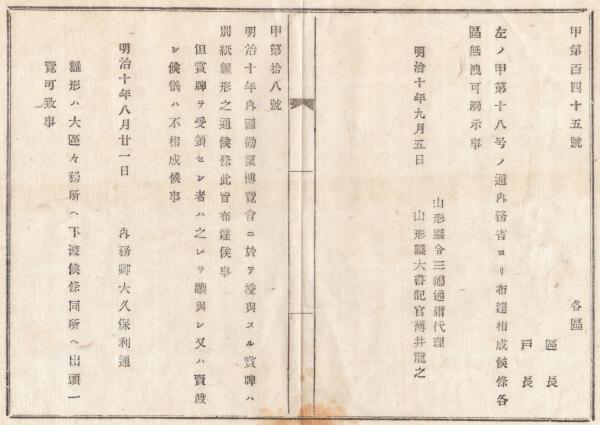 甲第百四十五號
各區
區長
戸長
左ノ甲第十八号ノ通内務省ヨリ布達相成候條各
區無洩可觸示事
明治十年九月五日
山形縣令三嶋通庸代理
山形縣大書記官薄井龍之
甲第拾八號
明治十年内國勸業博覽會ニ於テ授與スル賞牌ハ
別紙雛形之通候條此旨布達候事
但賞牌ヲ受領セシ者ハ之レヲ讓與シ又ハ賣渡
シ候儀ハ不相成候事
明治十年八月廿一日 内務卿大久保利通
雛形ハ大區々務所ヘ下渡候條同所ヘ出頭一
覽可致事